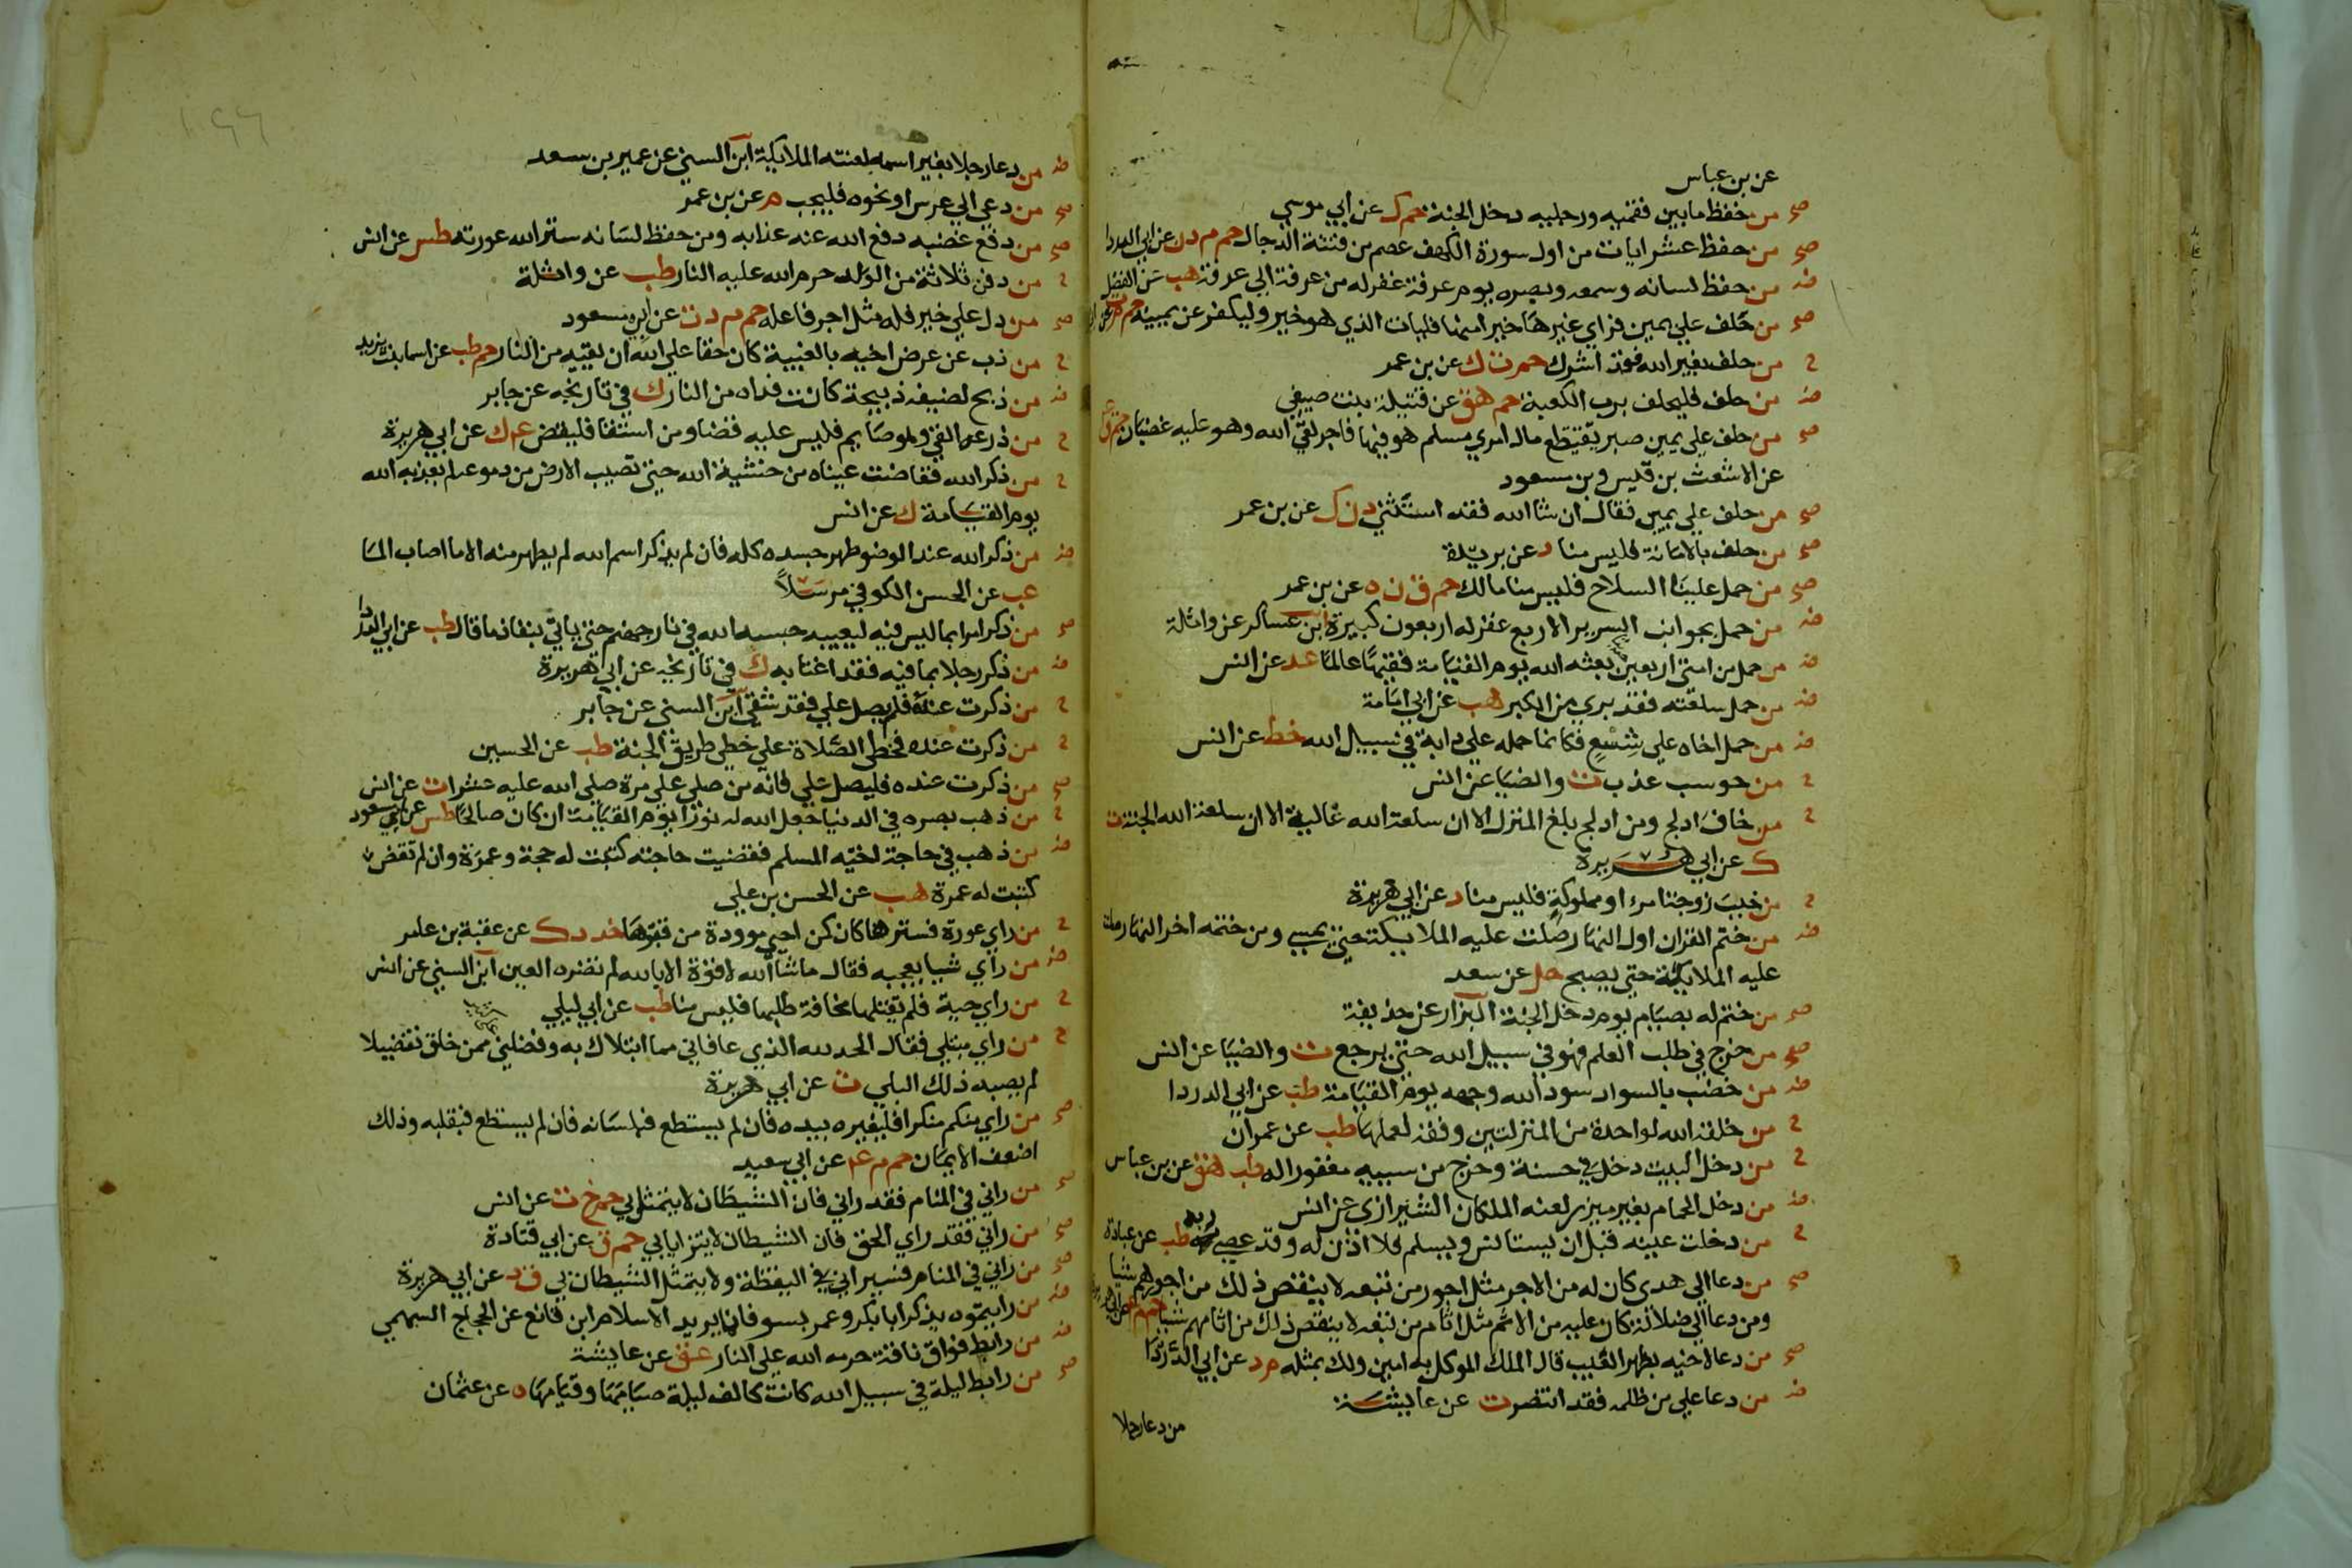 عن بن عباس
صح من حفظ ما بين فقميه ورجليه دخل الجنة حم ك عن ابي موسي
صح من حفظ عشر ايات من اول سورة الكهف عصم من فتنة الدجال حم م د ن عن ابي الدردا
ض من حفظ لسانه وسمعه وبصره يوم عرفة غفر له من عرفة الي عرفة هب عن الفضل
صح من حلف علي يمين فراي غيرها خيرا منها فليات الذي هو خير وليكفر عن يمينه حم م ت
ح من حلف بغير الله فقد اشرك حم ت ك عن بن عمر
ض من حلف فليحلف برب الكعبة حم هق عن قتيلة بنت صيفي
صح من حلف علي يمين صبر يقتطع مال امري مسلم هو فيها فاجر لقي الله وهو عليه غضبان حم ق
عن الاشعث بن قيس وبن مسعود
صح من حلف علي يمين فقال ان شا الله فقد استثني د ن ك عن بن عمر
صح من حلف بالامانة فليس منا د عن بريدة
صح من حمل علينا السلاح فليس منا مالك حم ق ن ه عن بن عمر
ض من حمل بجوانب السرير الاربع غفر له اربعون كبيرة ابن عساكر عن واثلة
ض من حمل من امتي اربعين بعثه الله يوم القيامة فقيها عالما عد عن انس
ض من حمل سلعته فقد بري من الكبر هب عن ابي امامة
ض من حمل اخاه علي شسع فكانما حمله علي دابة في سبيل الله خط عن انس
ح من حوسب عذب ت والضيا عن انس
ح من خاف ادلج ومن ادلج بلغ المنزل الا ان سلعة الله غالية الا ان سلعة الله الجنة ت
ك عن ابي هريرة
ح من خبب زوجة امرء او مملوكه فليس منا د عن ابي هريرة
ض من ختم القران اول النهار صلت عليه الملايكة حتي يمسي ومن ختمه اخر النهار صلت
عليه الملايكة حتي يصبح حل عن سعد
صح من ختم له بصيام يوم دخل الجنة البزار عن حذيفة
صح من خرج في طلب العلم فهو في سبيل الله حتي يرجع ت والضيا عن انس
ض من خضب بالسواد سود الله وجهه يوم القيامة طب عن ابي الدردا
ح من خلقه الله لواحدة من المنزلتين وفقه لعملها طب عن عمران
ح من دخل البيت دخل في حسنة وخرج من سييه مغفورا له طب هق عن بن عباس
ض من دخل الحمام بغير ميزر لعنه الملكان الشيرازي عن انس
ح من دخلت عينه قبل ان يستانس ويسلم فلا اذن له وقد عصي ربه طب عن عبادة
صح من دعا الي هدي كان له من الاجر مثل اجور من تبعه لا ينقص ذلك من اجورهم شيا
ومن دعا الي ضلالة كان عليه من الاثم مثل اثام من تبعه لا ينقص ذلك من اثامهم شيا حم م
صح من دعا لاخيه بظهر الغيب قال الملك الموكل به امين ولك بمثله م د عن ابي الدردا
ض من دعا علي من ظلمه فقد انتصر ت عن عايشة
من دعا رجلا
ض من دعا رجلا بغير اسمه لعنته الملايكة ابن السني عن عمير بن سعد
صح من دعي الي عرس او نحوه فليجب م عن بن عمر
صح من دفع غضبه دفع الله عنه عذابه ومن حفظ لسانه ستر الله عورته طس عن انس
ح من دفن ثلاثة من الولد حرم الله عليه النار طب عن واثلة
صح من دل علي خير فله مثل اجر فاعله حم م د ت عن ابي مسعود
ح من ذب عن عرض اخيه بالغيبة كان حقا علي الله ان يقيه من النار حم طب عن اسما بنت يزيد
ض من ذبح لضيفه ذبيحة كانت فداه من النار ك في تاريخه عن جابر
ح من ذرعه القي وهو صايم فليس عليه قضا ومن استقا فليقض عه ك عن ابي هريرة
ح من ذكر الله ففاضت عيناه من خشية الله حتي تصيب الارض من دموعه لم يعذبه الله
يوم القيامة ك عن انس
ض من ذكر الله عند الوضو طهر جسده كله فان لم يذكر اسم الله لم يطهر منه الا ما اصاب الما
عب عن الحسن الكوفي مرسلا
صح من ذكر امرا بما ليس فيه ليعيبه حبسه الله في نار جهنم حتي ياتي بنفاذ ما قال طب عن ابي الدردا
ض من ذكر رجلا بما فيه فقد اغتابه ك في تاريخه عن ابي هريرة
ح من ذكرت عنده فلم يصل علي فقد شقي ابن السني عن جابر
ح من ذكرت عنده فخطي الصلاة علي خطي طريق الجنة طب عن الحسين
صح من ذكرت عنده فليصل علي فانه من صلي علي مرة صلي الله عليه عشرا ت عن انس
ح من ذهب بصره في الدنيا جعل الله له نورا يوم القيامة ان كان صالحا طس عن بن مسعود
ض من ذهب في حاجة اخيه المسلم فقضيت حاجته كتبت له حجة وعمرة وان لم تقض
كتبت له عمرة هب عن الحسن بن علي
ح من راي عورة فسترها كان كمن احيي موودة من قبرها خد د ك عن عقبة بن عامر
ض من راي شيا يعجبه فقال ما شا الله لا قوة الا بالله لم تضره العين ابن السني عن انس
ح من راي حية فلم يقتلها مخافة طلبها فليس منا طب عن ابي ليلي
ح من راي مبتلي فقال الحمد لله الذي عافاني مما ابتلاك به وفضلني ممن خلق تفضيلا
لم يصبه ذلك البلي ت عن ابي هريرة
صح من راي منكم منكرا فليغيره بيده فان لم يستطع فبلسانه فان لم يستطع فبقلبه وذلك
اضعف الايمان حم م عه عن ابي سعيد
صح من راني في المنام فقد راني فان الشيطان لا يتمثل بي حم خ ت عن انس
صح من راني فقد راي الحق فان الشيطان لا يتزايا بي حم ق عن ابي قتادة
صح من راني في المنام فسيراني في اليقظة ولا يتمثل الشيطان بي ق د عن ابي هريرة
ض من رايتموه يذكر ابا بكر وعمر بسو فانما يريد الاسلام ابن قانع عن الحجاج السهمي
ض من رابط فواق ناقة حرمه الله علي النار عق عن عايشة
صح من رابط ليلة في سبيل الله كانت كالف ليلة صيامها وقيامها ه عن عثمان